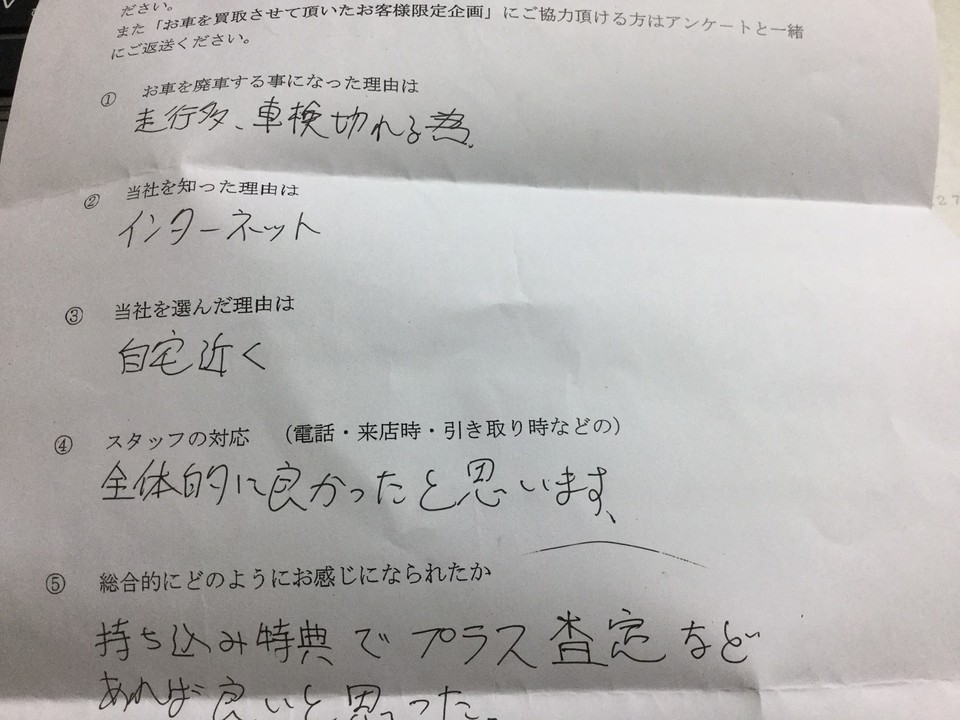 ださい。
また「お車を買取させて頂いたお客様限定企画」にご協力頂ける方はアンケートと一緒
にご返送ください。
① お車を廃車する事になった理由は
走行多、車検切れる為.
② 当社を知った理由は
インターネット
③ 当社を選んだ理由は
自宅近く
④ スタッフの対応 (電話・来店時・引き取り時などの)
全体的に良かったと思います、
⑤ 総合的にどのようにお感じになられたか
持ち込み特典でプラス査定など
あれば良いと思った.
27